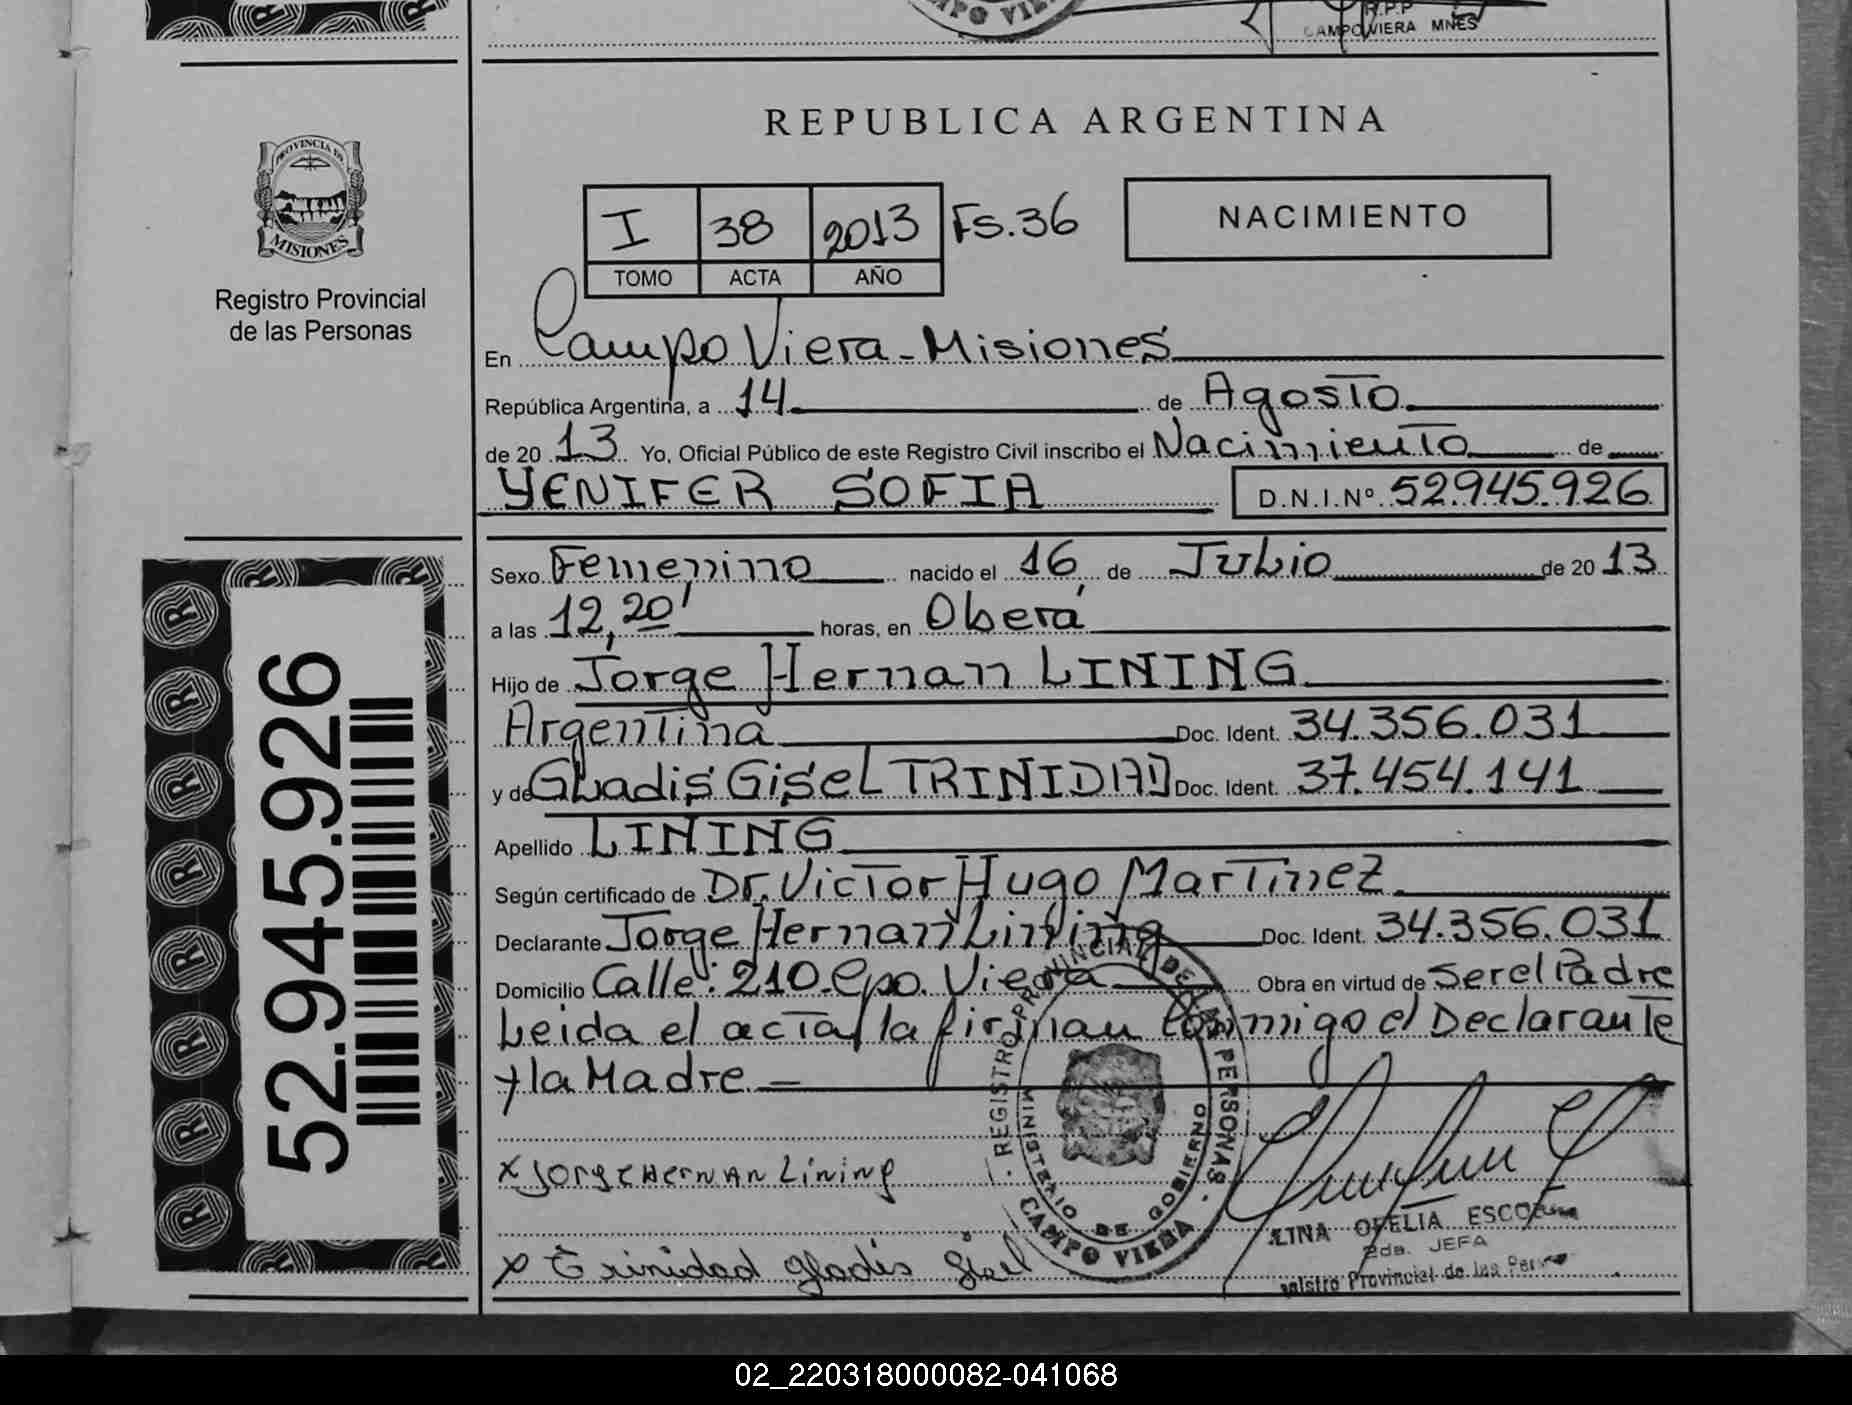 CAMPO VIERA
R.P.P
CAMPO VIERA MNES
PROVINCIA DE
MISIONES
Registro Provincial
de las Personas
REPUBLICA ARGENTINA
I 38 2013 Fs.36
TOMO ACTA AÑO
NACIMIENTO
En Campo Viera - Misiones
República Argentina, a 14 de Agosto
de 20 13 Yo, Oficial Público de este Registro Civil inscribo el Nacimiento de
YENIFER SOFIA D.N.I.Nº 52.945.926
Sexo Femenino nacido el 16 de Julio de 20 13
a las 12,20' horas, en Oberá
Hijo de Jorge Hernan LINING
Argentina Doc. Ident. 34.356.031
y de Gladis Gisel TRINIDAD Doc. Ident. 37.454.141
Apellido LINING
Según certificado de Dr. Victor Hugo Martinez
Declarante Jorge Hernan Lining Doc. Ident. 34.356.031
Domicilio Calle: 210. Cpo. Viera Obra en virtud de Ser el Padre
Leida el acta, la firman conmigo el Declarante
y la Madre
52.945.926
x Jorge Hernan Lining
x Trinidad Gladis Gisel
REGISTRO PROVINCIAL DE LAS PERSONAS
MINISTERIO DE GOBIERNO
CAMPO VIERA
LINA OFELIA
2da. JEFA
Registro Provincial de las Pers
02_220318000082-041068